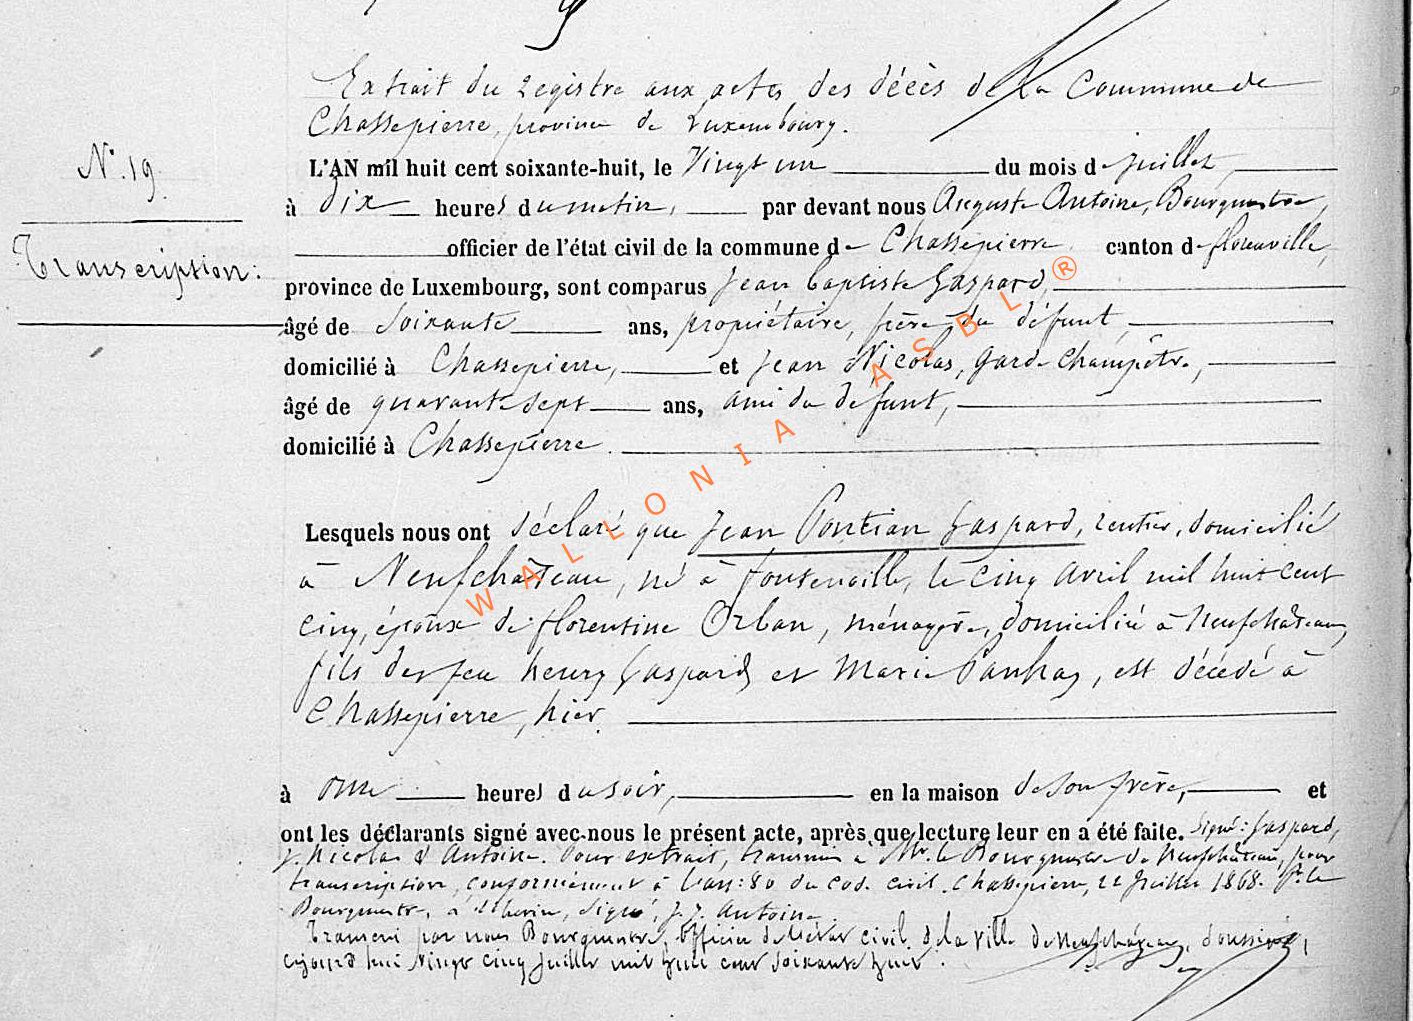 Extrait du Registre aux actes des décès de la Commune de
Chassepierre, province de Luxembourg.
N° 19.
L'AN mil huit cent soixante-huit, le Vingt un du mois de juillet,
à dix heures du matin, par devant nous Auguste Antoine, Bourgmestre,
officier de l'état civil de la commune de Chassepierre canton de florenville,
Transcription:
province de Luxembourg, sont comparus Jean baptiste Gaspard,
âgé de Soixante ans, propriétaire, frère du défunt,
domicilié à Chassepierre, et Jean Nicolas, garde Champêtre,
âgé de quarante sept ans, ami du défunt,
domicilié à Chassepierre.
Lesquels nous ont déclaré que Jean Pontian Gaspard, rentier, domicilié
à Neufchâteau, né à fontenoille, le Cinq avril mil huit cent
cinq, époux de florentine Orban, ménagère, domiciliée à Neufchâteau,
fils de feu henry Gaspard et Marie, est décédé à
Chassepierre, hier
à onze heures du soir, en la maison de son frère, et
ont les déclarants signé avec nous le présent acte, après que lecture leur en a été faite. Signé: Gaspard,
J. Nicolas & Antoine. Pour extrait, transmis à Mr. le Bourgmestre de Neufchâteau, pour
transcription, conformément à l'art: 80 du cod. civil. Chassepierre, 22 Juillet 1868. Pr. le
Bourgmestre, signé, J. J. Antoine.
Transcrit par nous Bourgmestre, officier de l'état civil de la ville de Neufchâteau,
cejourd'hui vingt cinq juillet mil huit cent soixante huit.
WALLONIA ASBL ®